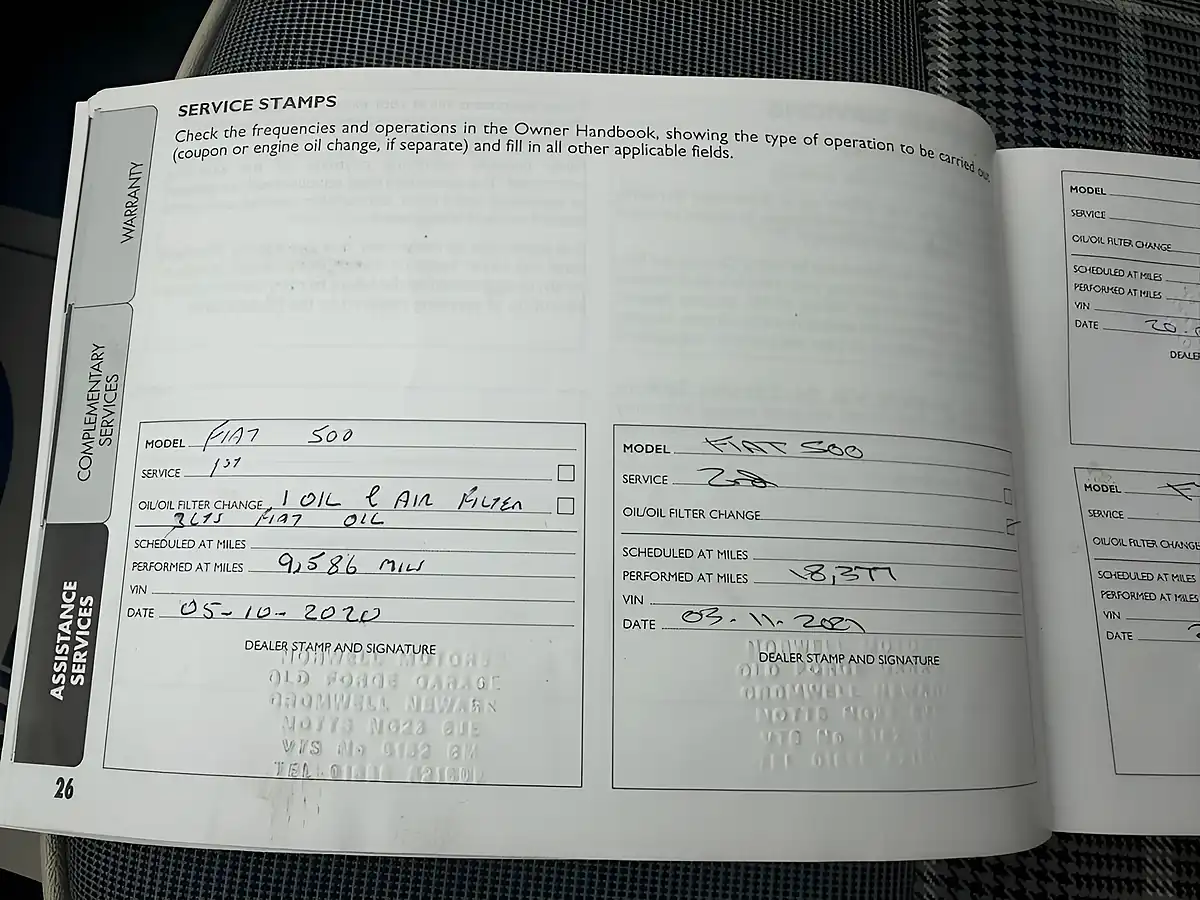 SERVICE STAMPS
Check the frequencies and operations in the Owner Handbook, showing the type of operation to be carried out
(coupon or engine oil change, if separate) and fill in all other applicable fields.
WARRANTY
COMPLEMENTARY
SERVICES
ASSISTANCE
SERVICES
26
MODEL FIAT 500
SERVICE 1st
OIL/OIL FILTER CHANGE 1 OIL & AIR FILTER
FIAT OIL
SCHEDULED AT MILES
PERFORMED AT MILES 9,586
VIN
DATE 05-10-2020
DEALER STAMP AND SIGNATURE
NORWELL MOTORS
OLD FORGE GARAGE
CROMWELL NEWARK
NOTTS NG23
VTS No
TEL
MODEL FIAT 500
SERVICE 2nd
OIL/OIL FILTER CHANGE
SCHEDULED AT MILES
PERFORMED AT MILES 18,377
VIN
DATE 03.11.2021
DEALER STAMP AND SIGNATURE
NORWELL
OLD FORGE
CROMWELL NEWARK
NOTTS
VTS No
MODEL
SERVICE
OIL/OIL FILTER CHANGE
SCHEDULED AT MILES
PERFORMED AT MILES
VIN
DATE 20.
MODEL
SERVICE
OIL/OIL FILTER CHANGE
SCHEDULED AT MILES
PERFORMED AT MILES
VIN
DATE